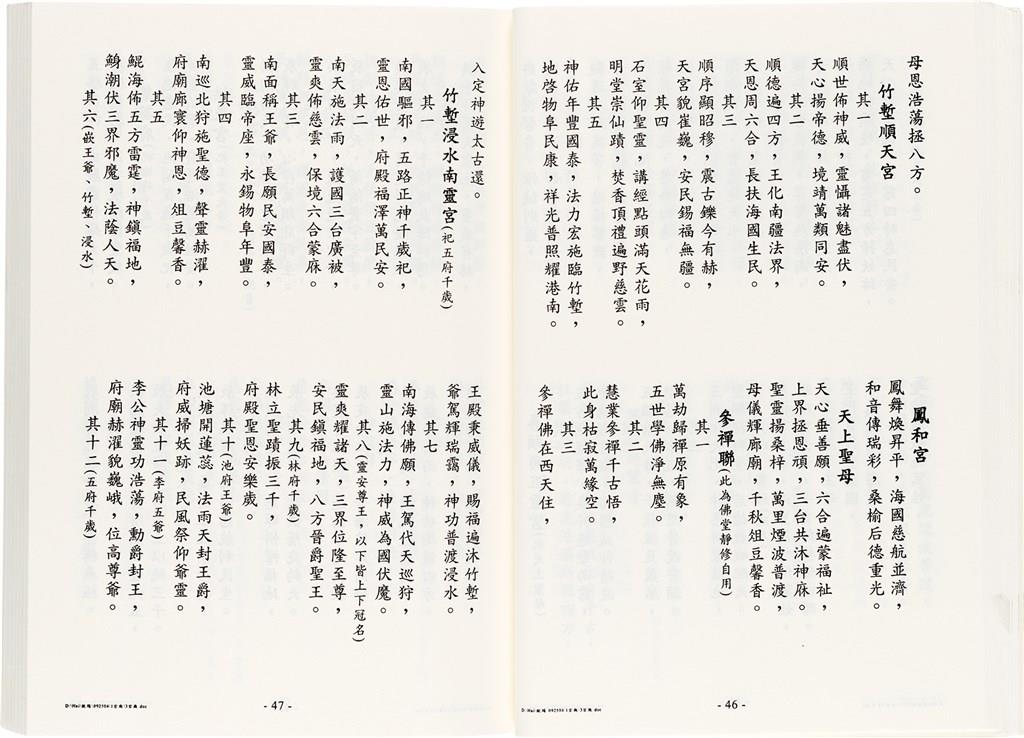 母恩浩蕩拯八方。
竹塹順天宮
其一
順世佈神威，靈懾諸魅盡伏，
天心揚帝德，境靖萬類同安。
其二
順德遍四方，王化南疆法界，
天恩周六合，長扶海國生民。
其三
順序顯昭穆，震古鑠今有赫，
天宮貌崔巍，安民錫福無疆。
其四
石室仰聖靈，講經點頭滿天花雨，
明堂崇仙蹟，焚香頂禮遍野慈雲。
其五
神佑年豐國泰，法力宏施臨竹塹，
地啓物阜民康，祥光普照耀港南。
鳳和宮
鳳舞煥昇平，海國慈航並濟，
和音傳瑞彩，桑榆后德重光。
天上聖母
天心垂善願，六合遍蒙福祉，
上界拯恩頑，三台共沐神庥。
聖靈揚桑梓，萬里煙波普渡，
母儀輝廊廟，千秋俎豆馨香。
參禪聯(此為佛堂靜修自用)
其一
萬劫歸禪原有象，
五世學佛淨無塵。
其二
慧業參禪千古悟，
此身枯寂萬緣空。
其三
參禪佛在西天住，
- 46 -
入定神遊太古還。
竹塹浸水南靈宮(祀五府千歲)
其一
南國驅邪，五路正神千歲祀，
靈恩佑世，府殿福澤萬民安。
其二
南天施法雨，護國三台廣被，
靈爽佈慈雲，保境六合蒙庥。
其三
南面稱王爺，長願民安國泰，
靈威臨帝座，永錫物阜年豐。
其四
南巡北狩施聖德，聲靈赫濯，
府廟廊寰仰神恩，俎豆馨香。
其五
鯤海佈五方雷霆，神鎮福地，
鯓潮伏三界邪魔，法蔭人天。
其六(嵌王爺、竹塹、浸水)
王殿秉威儀，賜福遍沐竹塹，
爺駕輝瑞靄，神功普渡浸水。
其七
南海傳佛願，王駕代天巡狩，
靈山施法力，神威為國伏魔。
其八(靈安尊王，以下皆上下冠名)
靈爽耀諸天，三界位隆至尊，
安民鎮福地，八方晉爵聖王。
其九(林府千歲)
林立聖蹟振三千，
府殿聖恩安樂歲。
其十(池府王爺)
池塘開蓮蕊，法雨天封王爵，
府威掃妖跡，民風祭仰爺靈。
其十一(李府五爺)
李公神靈功浩蕩，勳爵封王，
府廟赫濯貌巍峨，位高尊爺。
其十二(五府千歲)
- 47 -